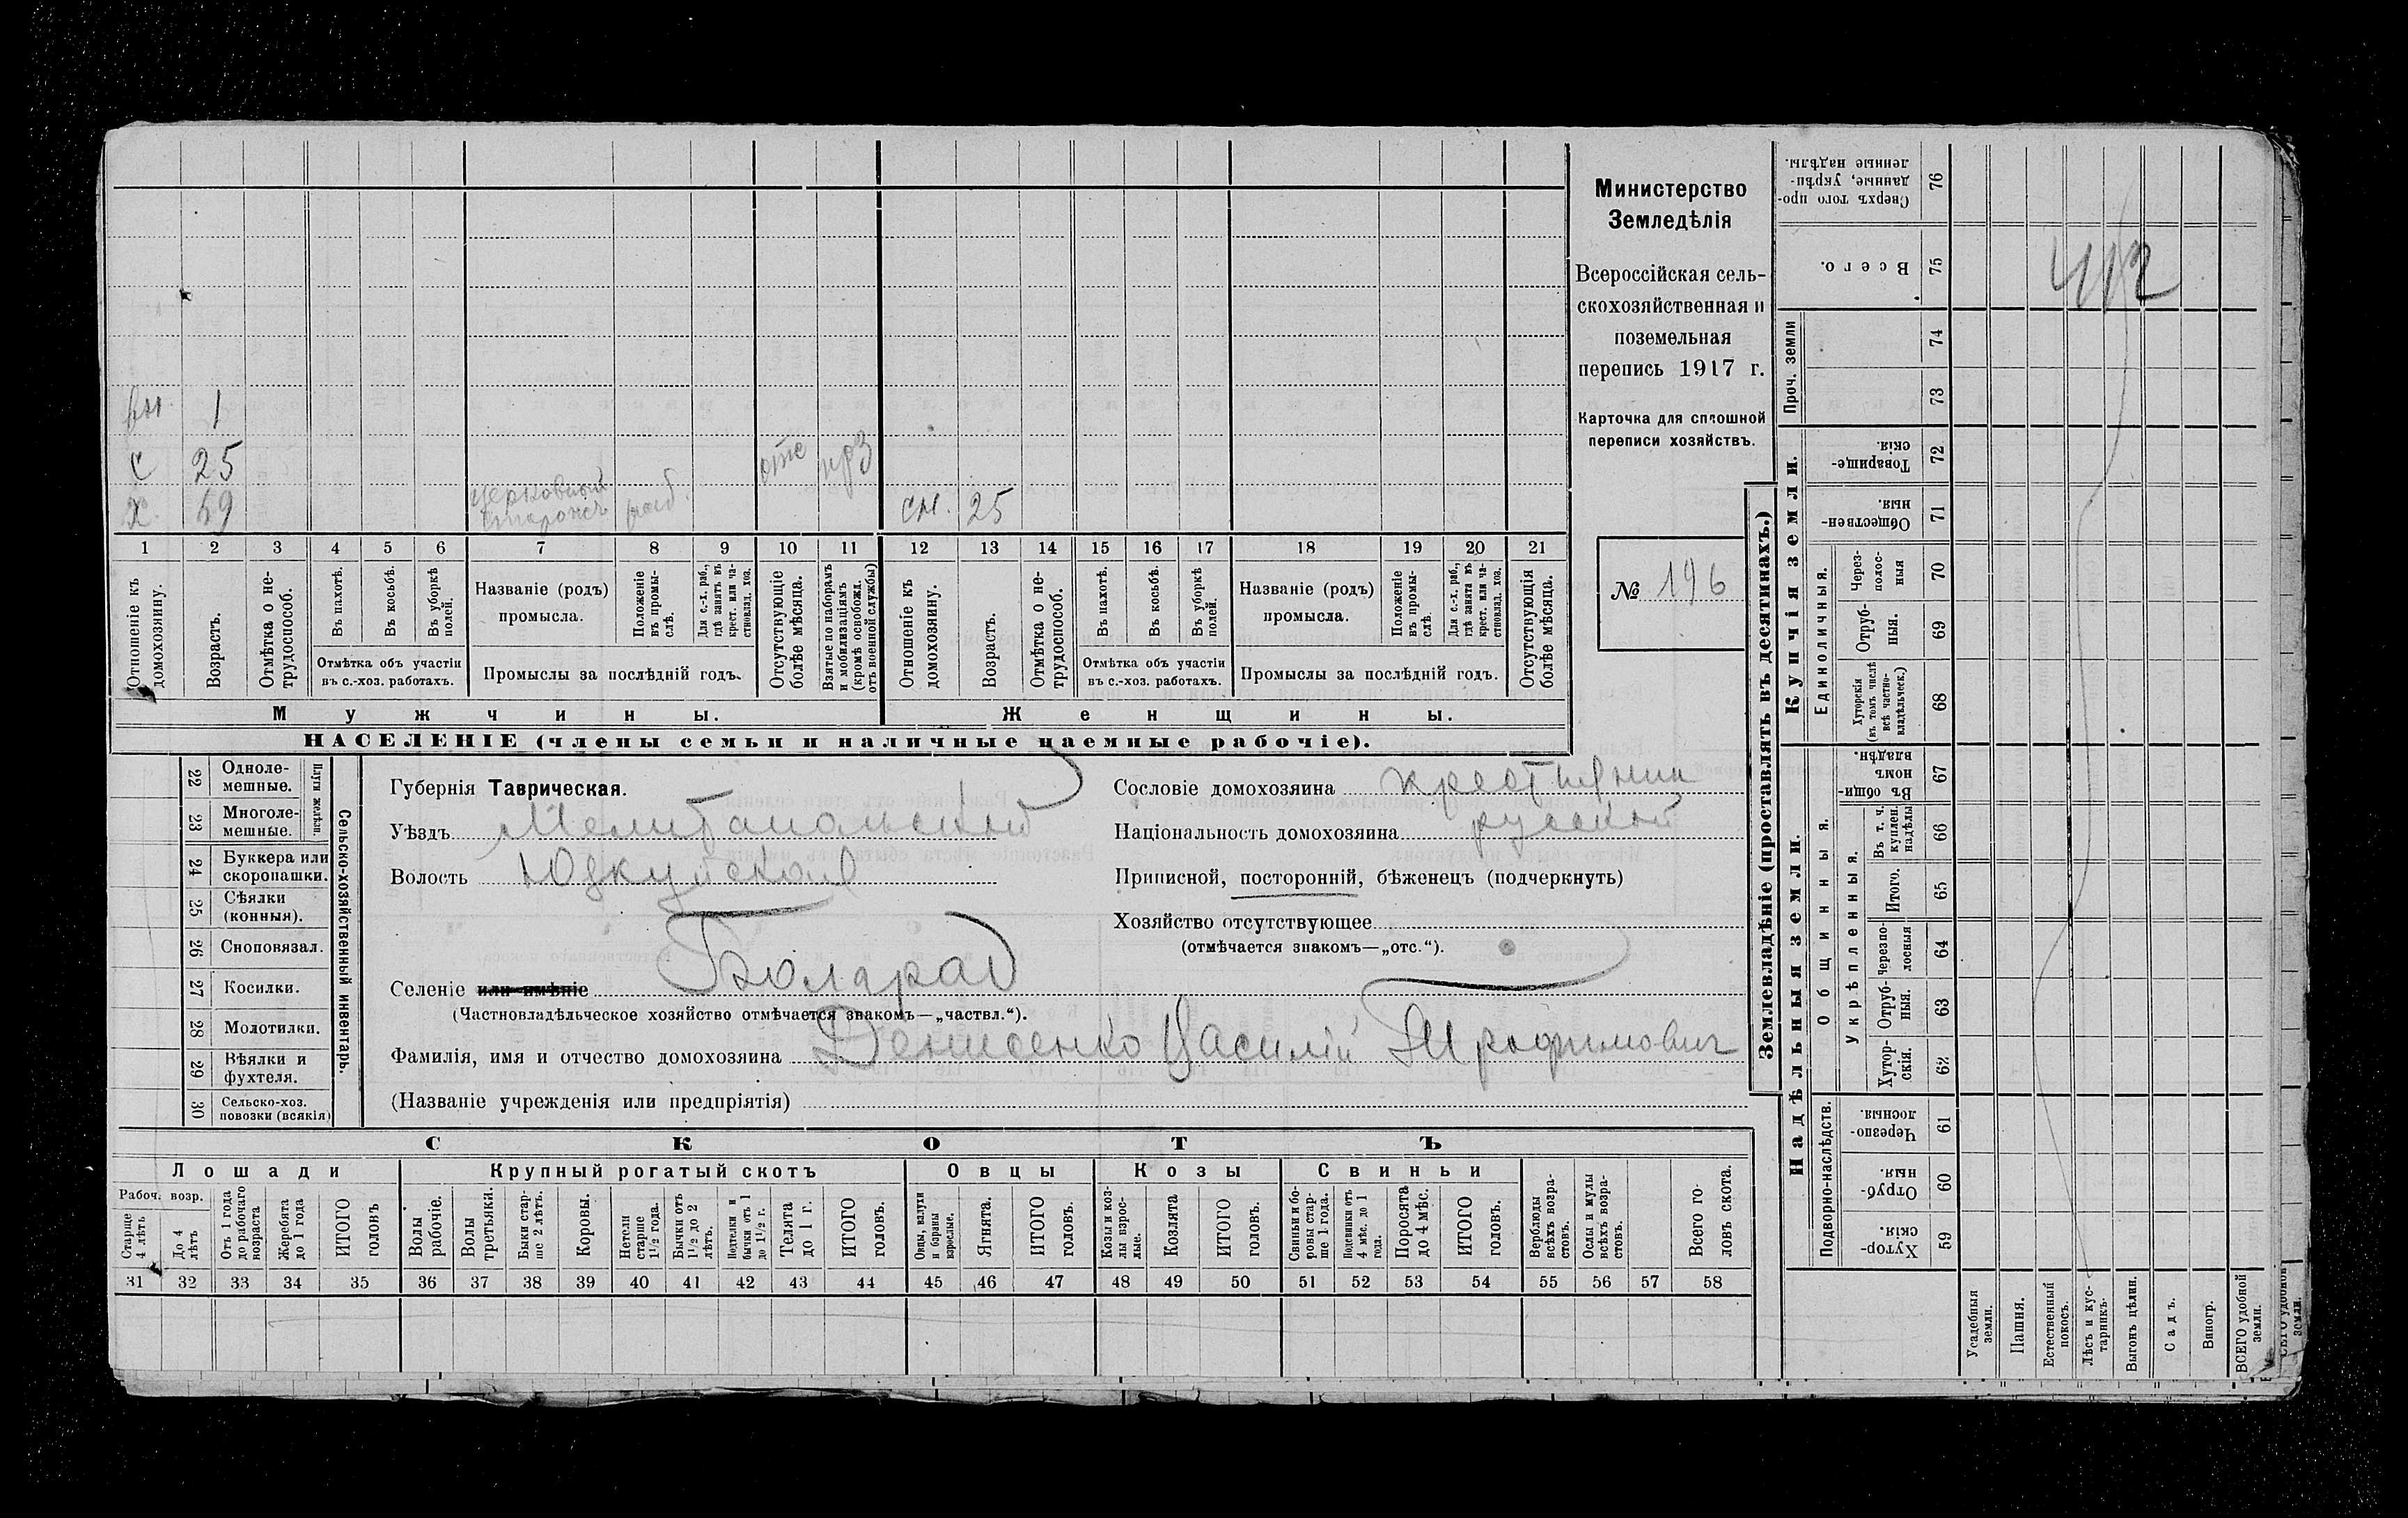 вн. 1
с 25 отс прз
х. 59 церковный сторожъ раб. сн. 25
1 2 3 4 5 6 7 8 9 10 11 12 13 14 15 16 17 18 19 20 21
Отношеніе къ домохозяину.
Возрастъ.
Отмѣтка о не-трудоспособ.
Въ пахотѣ.
Въ косьбѣ.
Въ уборкѣ полей.
Отмѣтка объ участіи
въ с.-хоз. работахъ.
Названіе (родъ)
промысла.
Положеніе въ промы-слѣ.
Для с.-х. раб., гдѣ занятъ въ крест. или ча-стновлад. хоз.
Промыслы за послѣдній годъ.
Отсутствующіе болѣе мѣсяца.
Взятые по наборамъ и мобилизаціямъ (кромѣ освобожд. отъ военной службы)
Отношеніе къ домохозяину.
Возрастъ.
Отмѣтка о не-трудоспособ.
Въ пахотѣ.
Въ косьбѣ.
Въ уборкѣ полей.
Отмѣтка объ участіи
въ с.-хоз. работахъ.
Названіе (родъ)
промысла.
Положеніе въ промы-слѣ.
Для с.-х. раб., гдѣ занята въ крест. или ча-стновлад. хоз.
Промыслы за послѣдній годъ.
Отсутствующія болѣе мѣсяца.
Мужчины.
Женщины.
НАСЕЛЕНІЕ (члены семьи и наличные наемные рабочіе).
Министерство
Земледѣлія
Всероссійская сель-
скохозяйственная и
поземельная
перепись 1917 г.
Карточка для сплошной
переписи хозяйствъ.
№ 196
22 Одноле-мешные.
23 Многоле-мешные.
Плуги желѣзн.
24 Буккера или скоропашки.
25 Сѣялки (конныя).
26 Сноповязал.
27 Косилки.
28 Молотилки.
29 Вѣялки и фухтеля.
30 Сельско-хоз. повозки (всякія)
Сельско-хозяйственный инвентарь.
Губернія Таврическая.
Уѣздъ Мелитопольский
Волость Юзкуйская
Селеніе или имѣніе Болград
(Частновладѣльческое хозяйство отмѣчается знакомъ—„частвл.“).
Фамилія, имя и отчество домохозяина Денисенко Василій Трофимович
(Названіе учрежденія или предпріятія)
Сословіе домохозяина крестьянин
Національность домохозяина русский
Приписной, посторонній, бѣженецъ (подчеркнуть)
Хозяйство отсутствующее
(отмѣчается знакомъ—„отс.“).
СКОТЪ
Лошади
Крупный рогатый скотъ
Овцы
Козы
Свиньи
Рабоч. возр.
Старше 4 лѣтъ
До 4 лѣтъ
Отъ 1 года до рабочаго возраста
Жеребята до 1 года
ИТОГО головъ
Волы рабочіе.
Волы третьяки.
Быки стар-ше 2 лѣтъ.
Коровы.
Нетели старше 1½ года.
Бычки отъ 1½ до 2 лѣтъ.
Подтелки и бычки отъ 1 до 1½ г.
Телята до 1 г.
ИТОГО головъ.
Овцы, валухи и бараны взрослые.
Ягнята.
ИТОГО головъ.
Козы и коз-лы взрос-лые.
Козлята
ИТОГО головъ.
Свиньи и бо-ровы стар-ше 1 года.
Подсвинки отъ 4 мѣс. до 1 года.
Поросята до 4 мѣс.
ИТОГО головъ.
Верблюды всѣхъ возра-стовъ.
Ослы и мулы всѣхъ возра-стовъ.
Всего го-ловъ скота.
31 32 33 34 35 36 37 38 39 40 41 42 43 44 45 46 47 48 49 50 51 52 53 54 55 56 57 58
Землевладѣніе (проставлять въ десятинахъ.)
Купчія земли.
Надѣльныя земли.
Проч. земли
Единоличныя.
Общинныя.
Укрѣпленныя.
Подворно-наслѣдств.
Сверхъ того про-данные, укрѣп-ленные надѣлы. 76
Всего. 75
74
73
Товарище-скія. 72
Обществен-ныя. 71
Через-полос-ныя 70
Отруб-ныя. 69
Хуторскія (въ томъ числѣ всѣ частно-владѣльческ.) 68
Въ общи-номъ владѣн. 67
Въ т. ч. куплен. надѣлы 66
Итого. 65
Черезпо-лосныя 64
Отруб-ныя. 63
Хутор-скія. 62
Черезпо-лосныя. 61
Отруб-ныя. 60
Хутор-скія. 59
Усадебныя земли.
Пашня.
Естественный покосъ.
Лѣсъ и кус-тарникъ.
Выгонъ цѣлин.
Садъ.
Виногр.
ВСЕГО удобной земли.